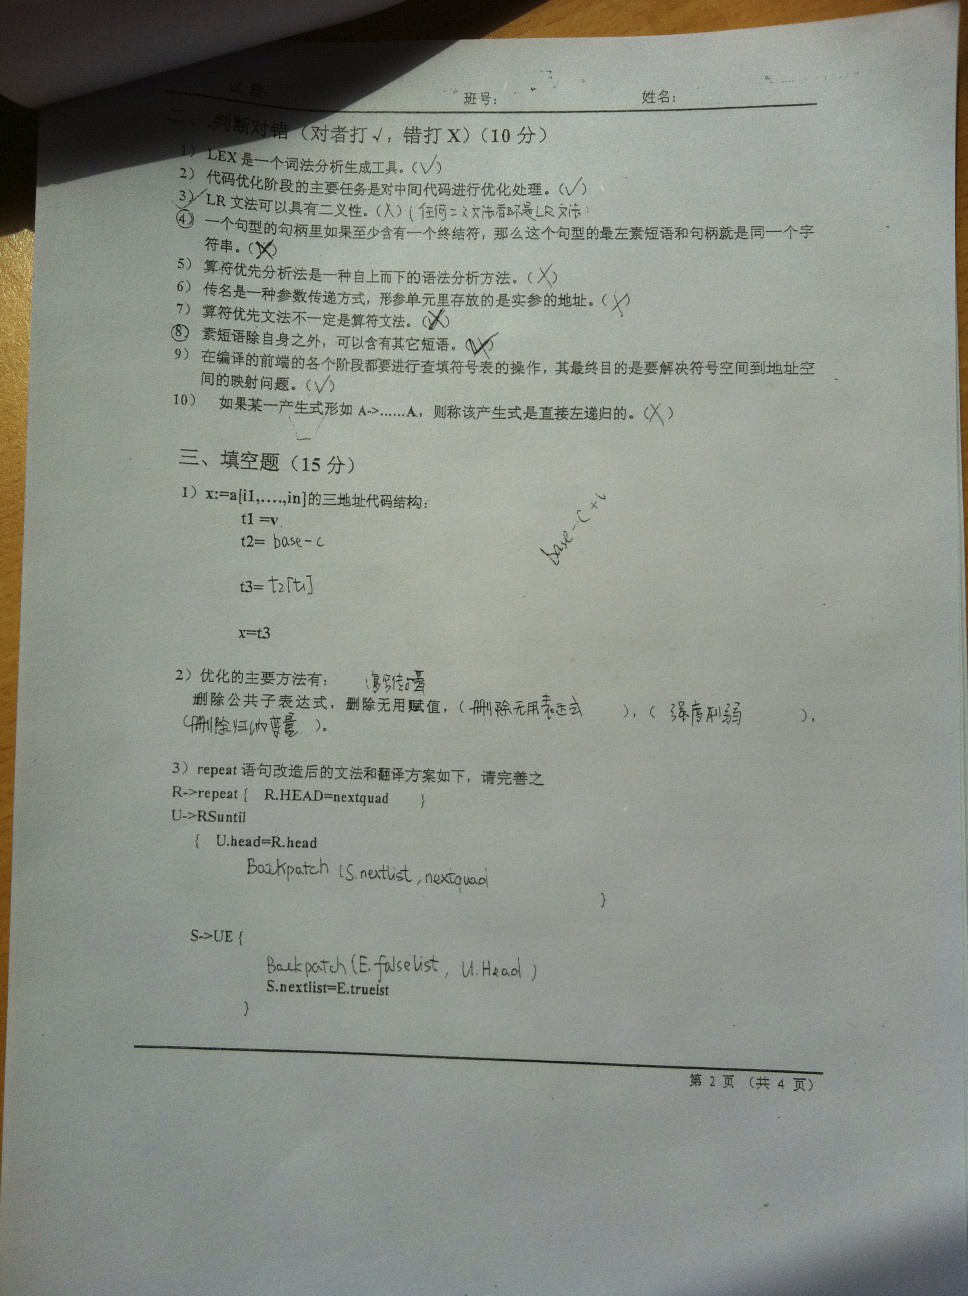 试 题:
班号: 姓名:
二、.判断对错（对者打√，错打X）（10 分）
1） LEX 是一个词法分析生成工具。（√）
2） 代码优化阶段的主要任务是对中间代码进行优化处理。（√）
3） LR 文法可以具有二义性。（X）（任何二义文法都不是LR文法）
4） 一个句型的句柄里如果至少含有一个终结符，那么这个句型的最左素短语和句柄就是同一个字
符串。（X）
5） 算符优先分析法是一种自上而下的语法分析方法。（X）
6） 传名是一种参数传递方式，形参单元里存放的是实参的地址。（X）
7） 算符优先文法不一定是算符文法。（X）
8） 素短语除自身之外，可以含有其它短语。（√）
9） 在编译的前端的各个阶段都要进行查填符号表的操作，其最终目的是要解决符号空间到地址空
间的映射问题。（√）
10） 如果某一产生式形如 A->......A，则称该产生式是直接左递归的。（X）
三、填空题（15 分）
1）x:=a[i1,….,in]的三地址代码结构：
t1 =v
t2= base-c
base-c+v
t3= t2[t1]
x=t3
2）优化的主要方法有： 复写传播
删除公共子表达式，删除无用赋值，（删除无用表达式 ），（ 强度削弱 ），
（删除归纳变量 ）。
3）repeat 语句改造后的文法和翻译方案如下，请完善之
R->repeat { R.HEAD=nextquad }
U->RSuntil
{ U.head=R.head
Backpatch (S.nextlist, nextquad
}
S->UE {
Backpatch (E.falselist, U.Head)
S.nextlist=E.truelst
}
第 2 页 （共 4 页）